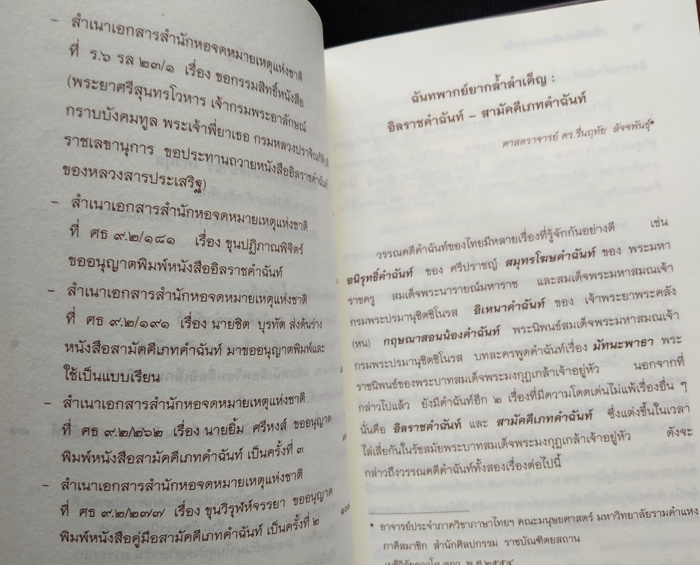 – สำเนาเอกสารสำนักหอจดหมายเหตุแห่งชาติ
ที่ ร.๖ รล ๒๓/๑ เรื่อง ขอกรรมสิทธิ์หนังสือ
(พระยาศรีสุนทรโวหาร เจ้ากรมพระอาลักษณ์
กราบบังคมทูล พระเจ้าพี่ยาเธอ กรมหลวงปราจิณกิติบดี
ราชเลขานุการ ขอประทานถวายหนังสืออิลราชคำฉันท์
ของหลวงสารประเสริฐ)
– สำเนาเอกสารสำนักหอจดหมายเหตุแห่งชาติ
ที่ ศธ ๙.๒/๑๘๑ เรื่อง ขุนปฏิภาณพิจิตร์
ขออนุญาตพิมพ์หนังสืออิลราชคำฉันท์
– สำเนาเอกสารสำนักหอจดหมายเหตุแห่งชาติ
ที่ ศธ ๙.๒/๑๙๑ เรื่อง นายชิต บุรทัต ส่งต้นร่าง
หนังสือสามัคคีเภทคำฉันท์ มาขออนุญาตพิมพ์และ
ใช้เป็นแบบเรียน
– สำเนาเอกสารสำนักหอจดหมายเหตุแห่งชาติ
ที่ ศธ ๙.๒/๒๖๒ เรื่อง นายยิ้ม ศรีหงส์ ขออนุญาต
พิมพ์หนังสือสามัคคีเภทคำฉันท์ เป็นครั้งที่ ๓
– สำเนาเอกสารสำนักหอจดหมายเหตุแห่งชาติ
ที่ ศธ ๙.๒/๒๗๗ เรื่อง ขุนวิรุฬห์จรรยา ขออนุญาต
พิมพ์หนังสือคู่มือสามัคคีเภทคำฉันท์ เป็นครั้งที่ ๒
ฉันทพากย์ยากล้ำลำเค็ญ :
อิลราชคำฉันท์ – สามัคคีเภทคำฉันท์
ศาสตราจารย์ ดร.รื่นฤทัย สัจจพันธุ์*
วรรณคดีคำฉันท์ของไทยมีหลายเรื่องที่รู้จักกันอย่างดี เช่น
อนิรุทธิ์คำฉันท์ ของ ศรีปราชญ์ สมุทรโฆษคำฉันท์ ของ พระมหา
ราชครู สมเด็จพระนารายณ์มหาราช และสมเด็จพระมหาสมณเจ้า
กรมพระปรมานุชิตชิโนรส อิเหนาคำฉันท์ ของ เจ้าพระยาพระคลัง
(หน) กฤษณาสอนน้องคำฉันท์ พระนิพนธ์สมเด็จพระมหาสมณเจ้า
กรมพระปรมานุชิตชิโนรส บทละครพูดคำฉันท์เรื่อง มัทนะพาธา พระ
ราชนิพนธ์ของพระบาทสมเด็จพระมงกุฎเกล้าเจ้าอยู่หัว นอกจากที่
กล่าวไปแล้ว ยังมีคำฉันท์อีก ๒ เรื่องที่มีความโดดเด่นไม่แพ้เรื่องอื่น ๆ
นั่นคือ อิลราชคำฉันท์ และ สามัคคีเภทคำฉันท์ ซึ่งแต่งขึ้นในเวลา
ไล่เลี่ยกันในรัชสมัยพระบาทสมเด็จพระมงกุฎเกล้าเจ้าอยู่หัว ดังจะ
กล่าวถึงวรรณคดีคำฉันท์ทั้งสองเรื่องต่อไปนี้
* อาจารย์ประจำภาควิชาภาษาไทยฯ คณะมนุษยศาสตร์ มหาวิทยาลัยรามคำแหง
ภาคีสมาชิก สำนักศิลปกรรม ราชบัณฑิตยสถาน